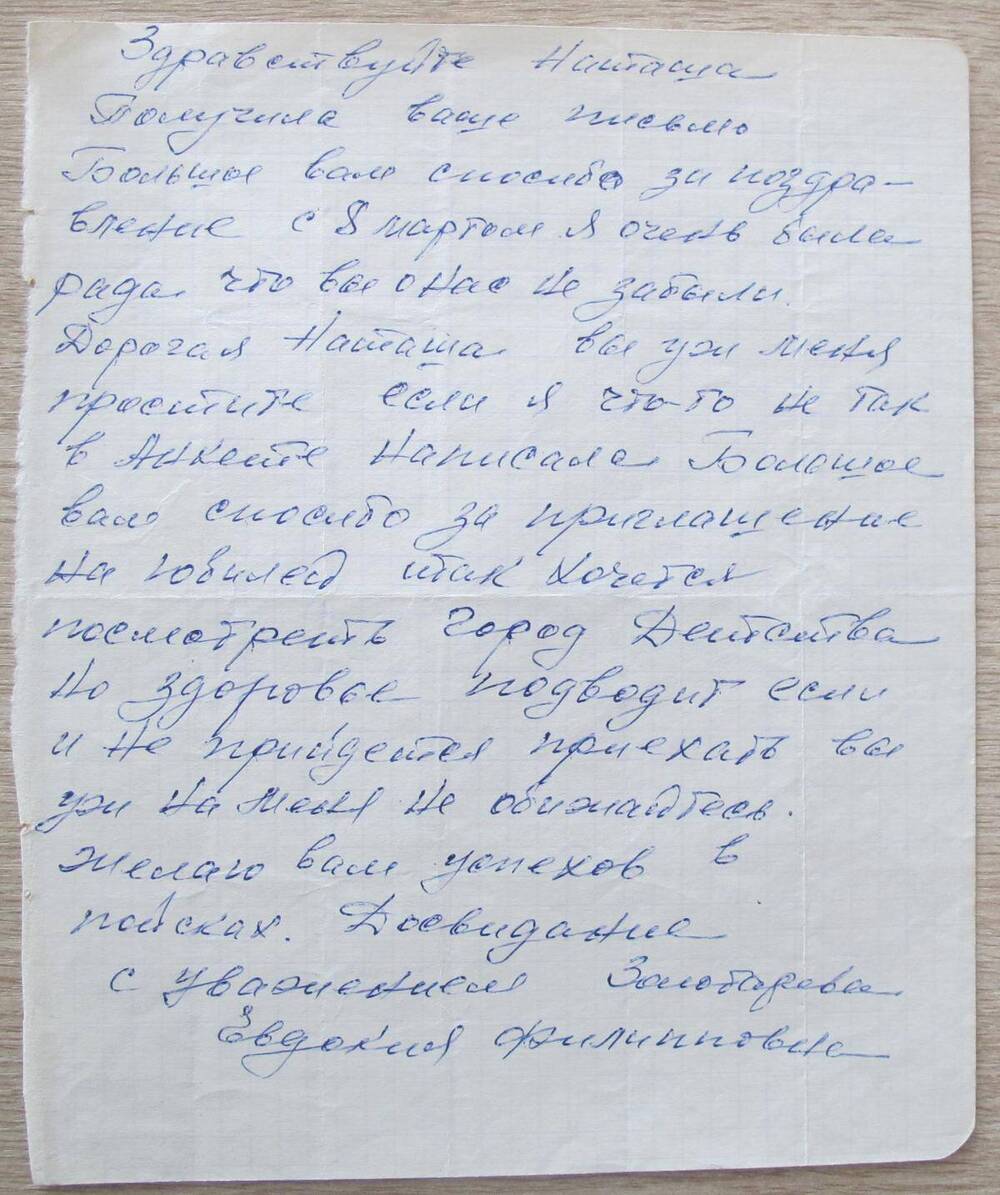 Здравствуйте Наташа
Получила ваше письмо
Большое вам спосибо за поздра-
вление с 8 мартом я очень была
рада что вы о нас не забыли.
Дорогая Наташа вы уж меня
простите если я что-то не так
в Анкете написала Большое
вам спосибо за приглашение
на юбилей итак хочется
посмотреть город Детства
Но здоровье подводит если
и не прийдется приехать вы
уж на меня не обижайтесь.
Желаю вам успехов в
поисках. Досвидание
с уважением Золотарева
Евдокия Филипповна